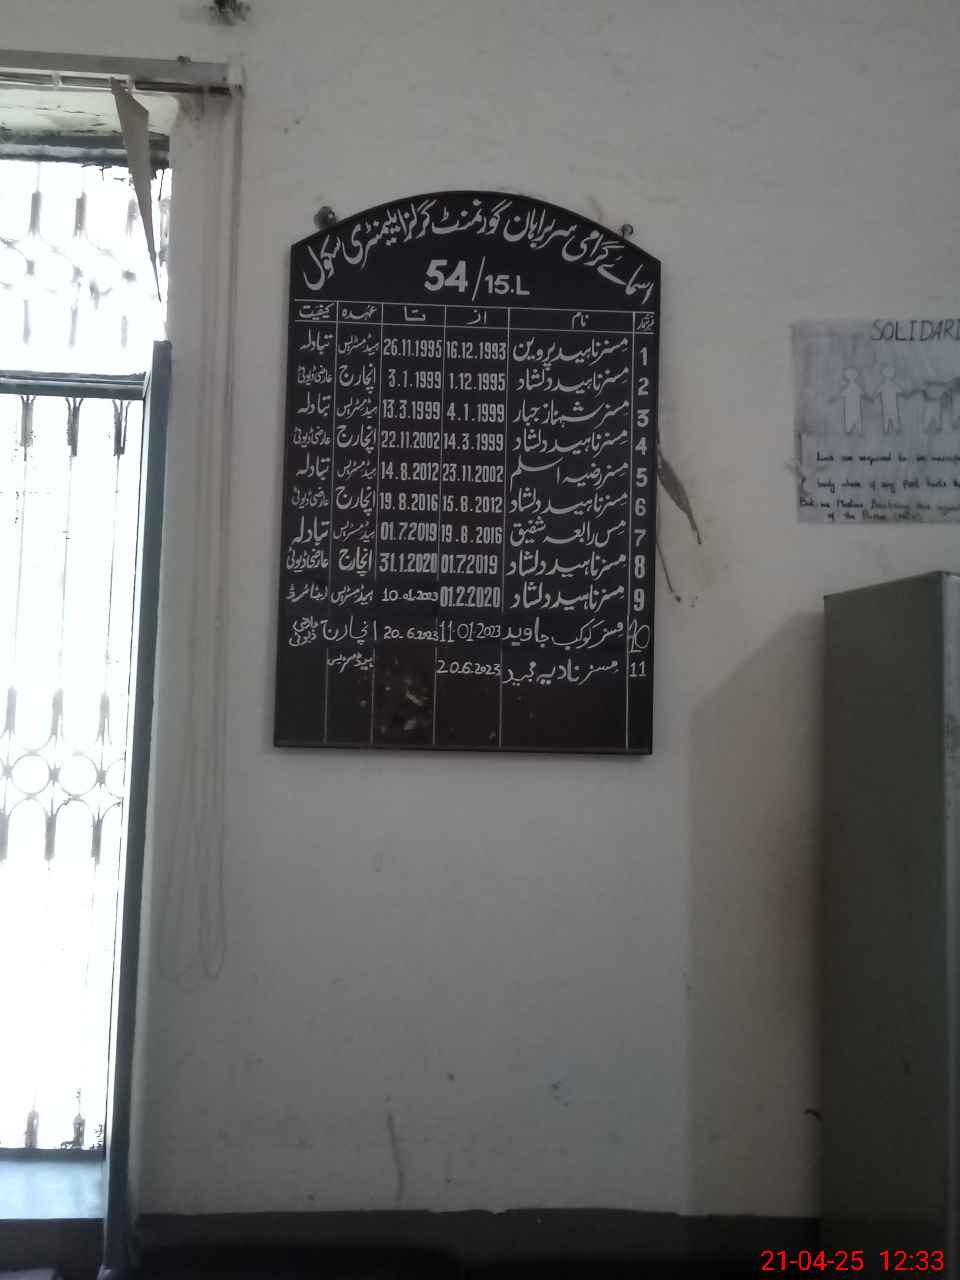 اسمائے گرامی سربراہان گورنمنٹ گرلز ایلیمنٹری سکول
54/15.L
نمبر شمار نام از تا عہدہ کیفیت
1 مسز ناہید پروین 16.12.1993 26.11.1995 ہیڈمسٹریس تبادلہ
2 مسز ناہید دلشاد 1.12.1995 3.1.1999 انچارج عارضی ڈیوٹی
3 مسز شہناز جبار 4.1.1999 13.3.1999 ہیڈمسٹریس تبادلہ
4 مسز ناہید دلشاد 14.3.1999 22.11.2002 انچارج عارضی ڈیوٹی
5 مسز رضیہ اسلم 23.11.2002 14.8.2012 ہیڈمسٹریس تبادلہ
6 مسز ناہید دلشاد 15.8.2012 19.8.2016 انچارج عارضی ڈیوٹی
7 مس رابعہ شفیق 19.8.2016 01.7.2019 ہیڈمسٹریس تبادلہ
8 مسز ناہید دلشاد 01.7.2019 31.1.2020 انچارج عارضی ڈیوٹی
9 مسز ناہید دلشاد 01.2.2020 10.01.2023 ہیڈمسٹریس ریٹائرڈ
10 مسز کوکب جاوید 11.01.2023 20.6.2023 انچارج عارضی ڈیوٹی
11 مسز نادیہ مجید 20.6.2023 ہیڈمسٹریس
SOLIDARI
body where if any part hurts the
of the
21-04-25 12:33